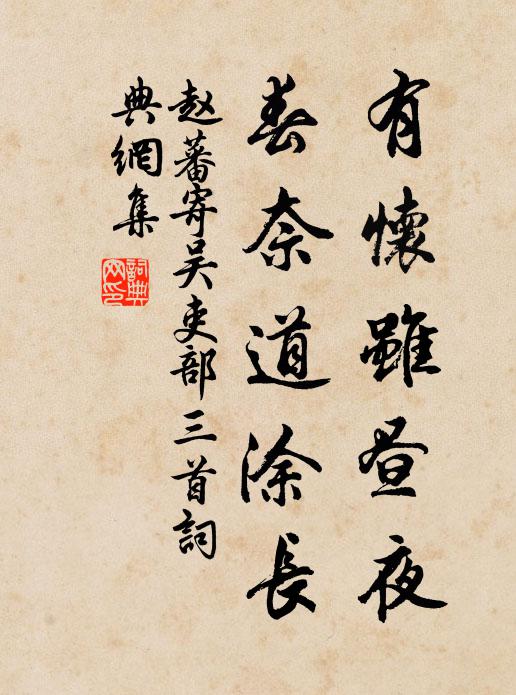 有懷雖昼夜
無奈道涂長
赵蕃寄吴吏部三首詞
典網集
詞典
网印